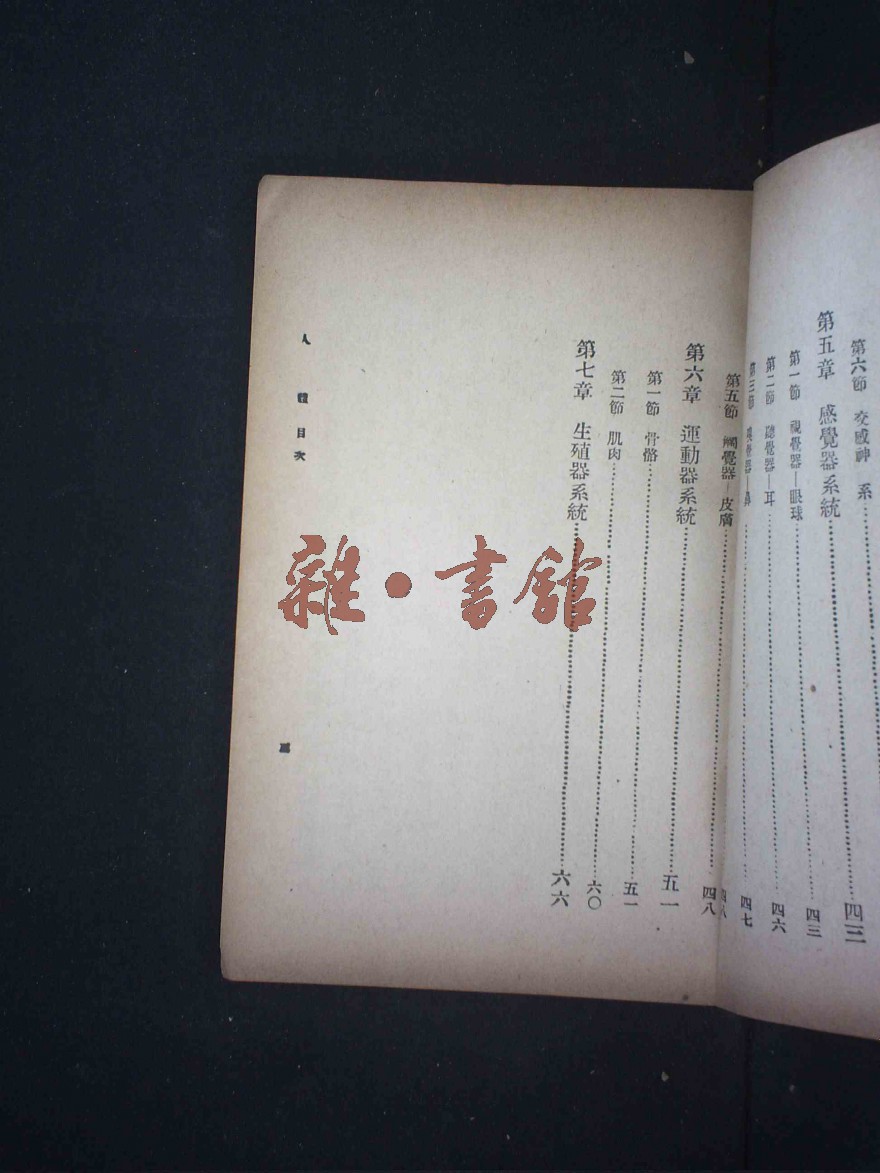 第六節 交感神 系
第五章 感覺器系統……四三
第一節 視覺器—眼球……四三
第二節 聽覺器—耳……四六
第三節 嗅覺器—鼻……四七
四八
第五節 觸覺器—皮膚……四八
第六章 運動器系統……五一
第一節 骨骼……五一
第二節 肌肉……六〇
第七章 生殖器系統……六六
人體目次
雜·書館